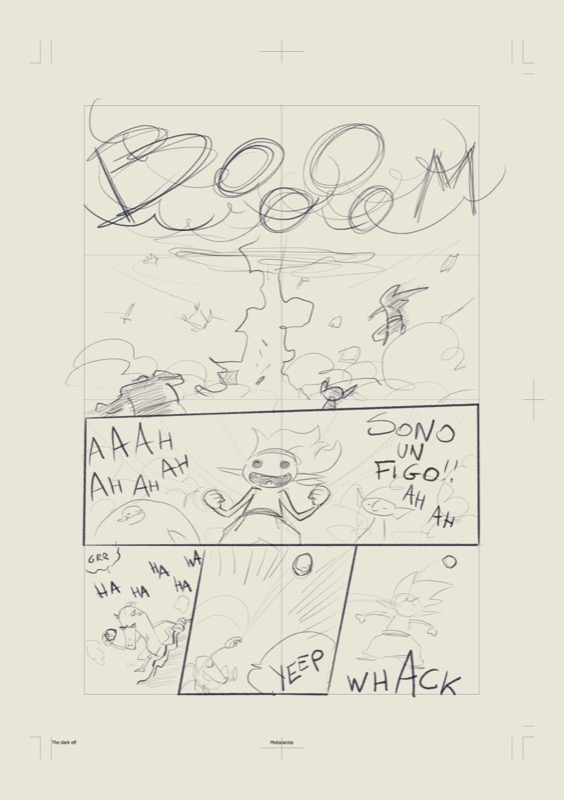 BOOOOM
AAAH
AH
AH AH
SONO
UN
FIGO!!
AH
AH
GRR
HA HA HA HA HA
YEEP
WHACK
The dark elf